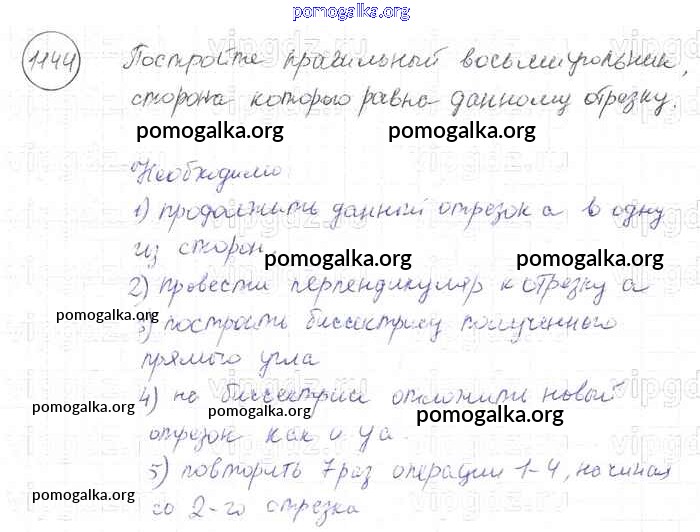 pomogalka.org
1144
Постройте правильный восьмиугольник,
сторона которого равна данному отрезку.
pomogalka.org pomogalka.org
Необходимо:
1) продолжить данный отрезок a в одну
из сторон.
pomogalka.org pomogalka.org
2) провести перпендикуляр к отрезку a
pomogalka.org
3) построить биссектрису полученного
прямого угла
4) на биссектрисе отложить новый
pomogalka.org pomogalka.org pomogalka.org
отрезок как и
5) повторить 7 раз операции 1-4, начиная
pomogalka.org
со 2-го отрезка